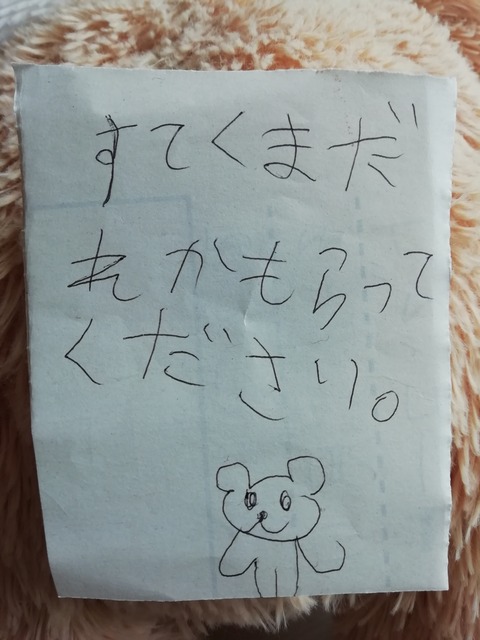 すてくまだ
れかもらって
ください。